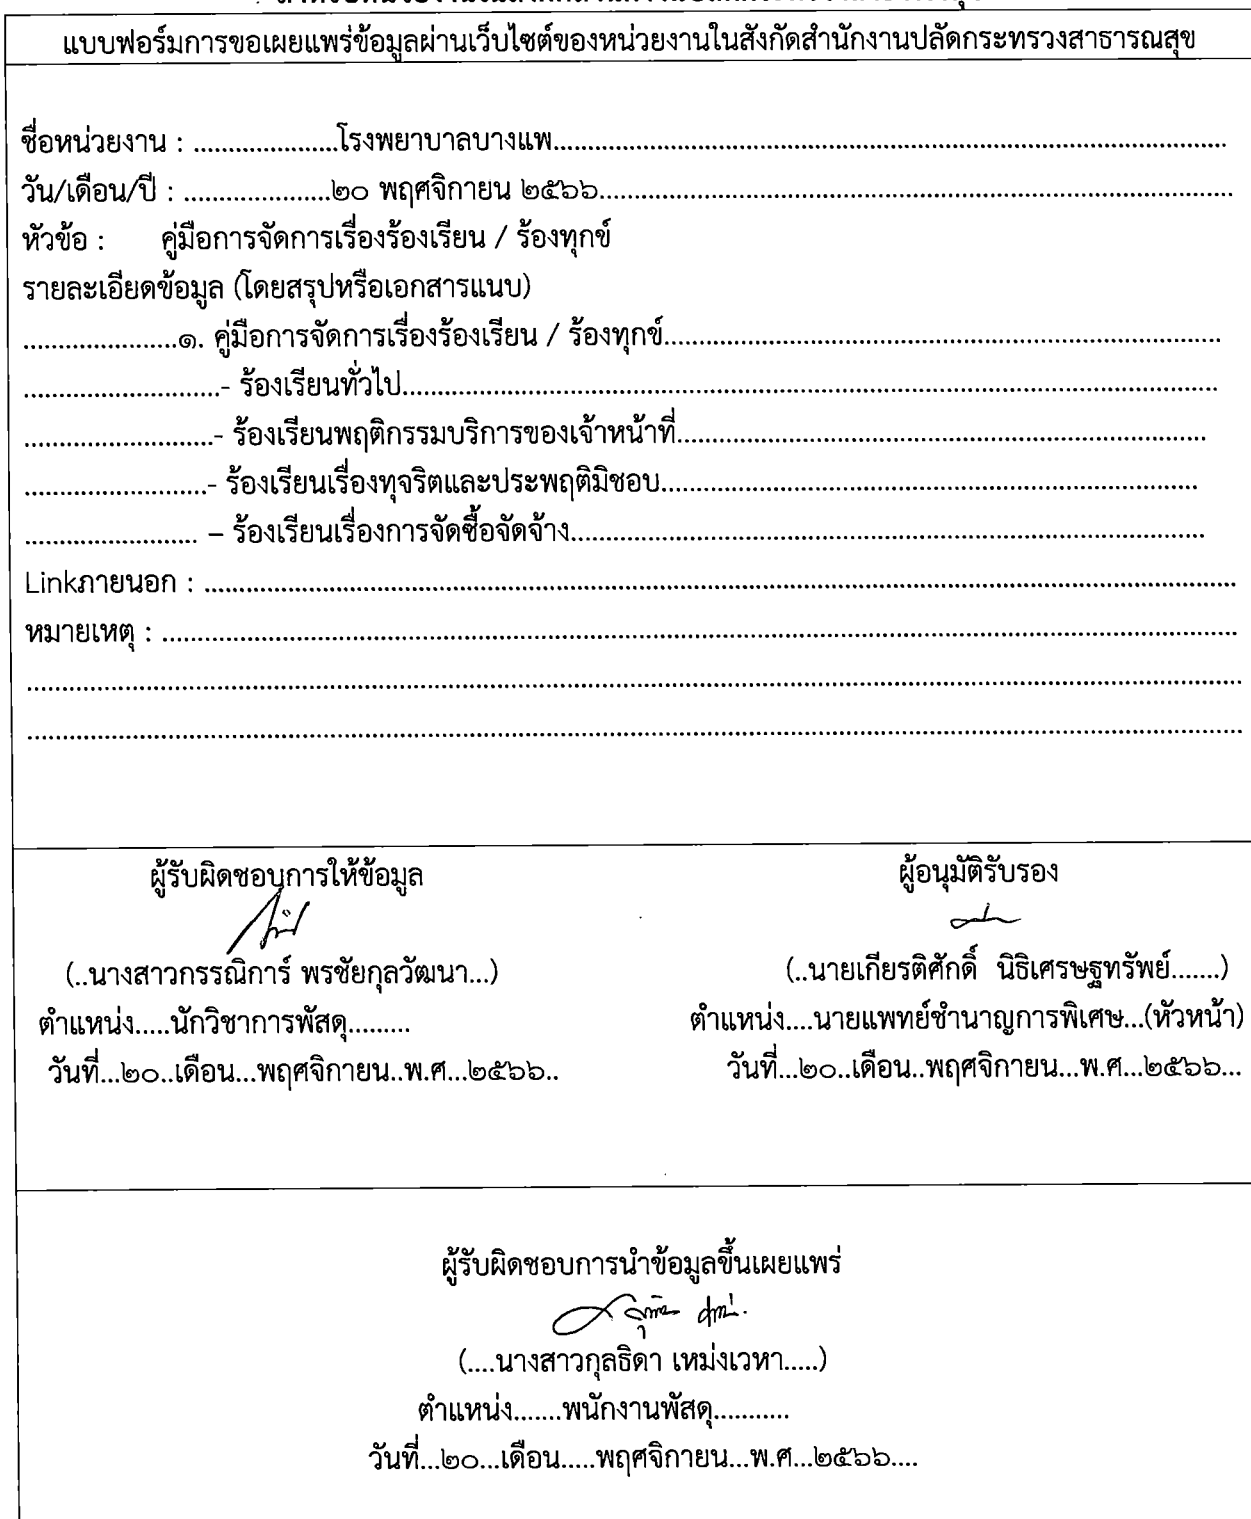 แบบฟอร์มการขอเผยแพร่ข้อมูลผ่านเว็บไซต์ของหน่วยงานในสังกัดสำนักงานปลัดกระทรวงสาธารณสุข
ชื่อหน่วยงาน : .....................โรงพยาบาลบางแพ.................................................................................................
วัน/เดือน/ปี : .....................๒๐ พฤศจิกายน ๒๕๖๖...........................................................................................
หัวข้อ : คู่มือการจัดการเรื่องร้องเรียน / ร้องทุกข์
รายละเอียดข้อมูล (โดยสรุปหรือเอกสารแนบ)
......................๑. คู่มือการจัดการเรื่องร้องเรียน / ร้องทุกข์................................................................................
............................- ร้องเรียนทั่วไป.....................................................................................................................
...........................- ร้องเรียนพฤติกรรมบริการของเจ้าหน้าที่............................................................................
..........................- ร้องเรียนเรื่องทุจริตและประพฤติมิชอบ.............................................................................
......................... – ร้องเรียนเรื่องการจัดซื้อจัดจ้าง...........................................................................................
Linkภายนอก : .....................................................................................................................................................
หมายเหตุ : ...........................................................................................................................................................
...............................................................................................................................................................................
...............................................................................................................................................................................
ผู้รับผิดชอบการให้ข้อมูล ผู้อนุมัติรับรอง
(..นางสาวกรรณิการ์ พรชัยกุลวัฒนา...) (..นายเกียรติศักดิ์ นิธิเศรษฐทรัพย์.......)
ตำแหน่ง.....นักวิชาการพัสดุ......... ตำแหน่ง....นายแพทย์ชำนาญการพิเศษ...(หัวหน้า)
วันที่...๒๐..เดือน...พฤศจิกายน..พ.ศ...๒๕๖๖.. วันที่...๒๐..เดือน..พฤศจิกายน...พ.ศ...๒๕๖๖...
ผู้รับผิดชอบการนำข้อมูลขึ้นเผยแพร่
(....นางสาวกุลธิดา เหม่งเวหา.....)
ตำแหน่ง.......พนักงานพัสดุ...........
วันที่...๒๐...เดือน.....พฤศจิกายน...พ.ศ...๒๕๖๖....